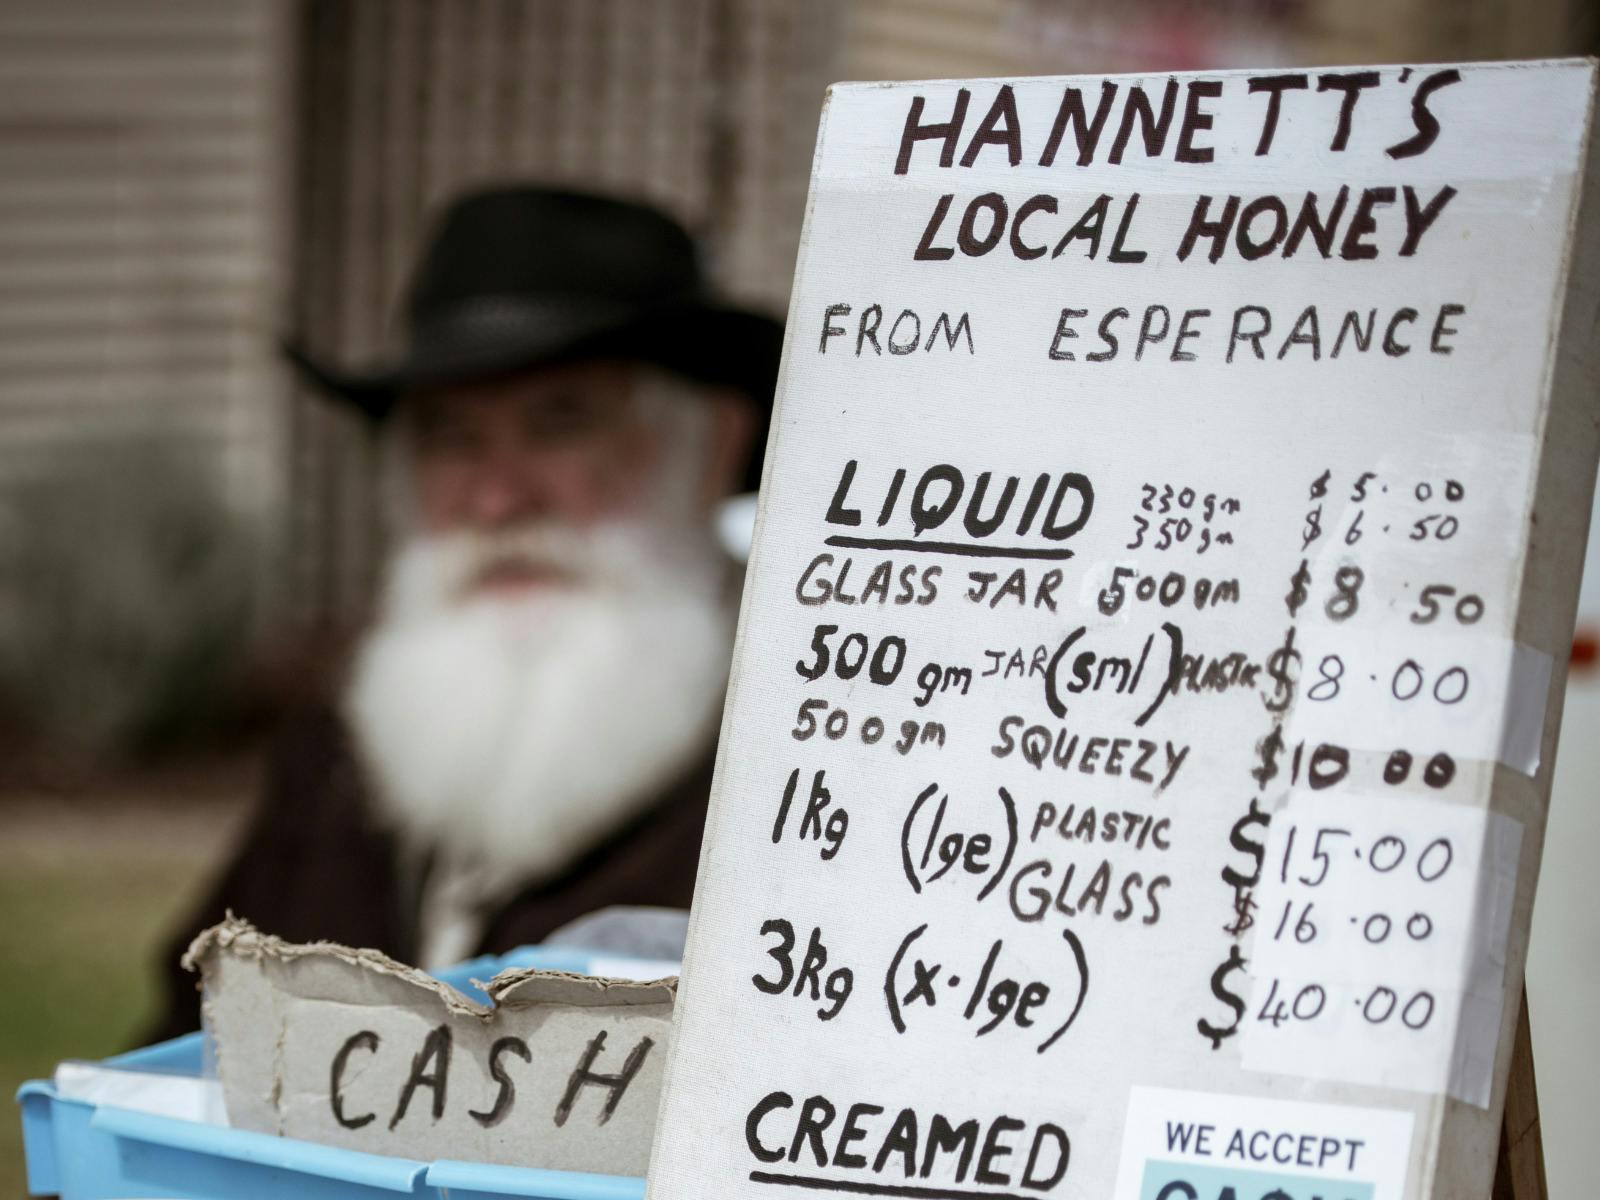 HANNETT'S
LOCAL HONEY
FROM ESPERANCE
LIQUID 230gm $5.00
350gm $6.50
GLASS JAR 500gm $8.50
500gm JAR (sml) PLASTIC $8.00
500gm SQUEEZY $10.00
1kg (lge) PLASTIC $15.00
GLASS $16.00
3kg (x.lge) $40.00
CREAMED
WE ACCEPT
CASH
CASH